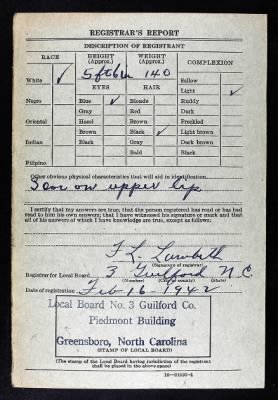 REGISTRAR'S REPORT
DESCRIPTION OF REGISTRANT
RACE
HEIGHT (Approx.)
WEIGHT (Approx.)
COMPLEXION
White ✓
5 ft 6 in
140
Sallow
EYES
HAIR
Light ✓
Negro
Blue ✓
Blonde
Ruddy
Gray
Red
Dark
Oriental
Hazel
Brown
Freckled
Brown
Black ✓
Light brown
Indian
Black
Gray
Dark brown
Bald
Black
Filipino
Other obvious physical characteristics that will aid in identification
Scar on upper lip
I certify that my answers are true; that the person registered has read or has had
read to him his own answers; that I have witnessed his signature or mark and that
all of his answers of which I have knowledge are true, except as follows:
T. L. Lambeth
(Signature of registrar)
Registrar for Local Board 3 Guilford N C
(Number) (City or county) (State)
Date of registration Feb 16 - 1942
Local Board No. 3 Guilford Co.
Piedmont Building
Greensboro, North Carolina
(STAMP OF LOCAL BOARD)
(The stamp of the Local Board having jurisdiction of the registrant
shall be placed in the above space)